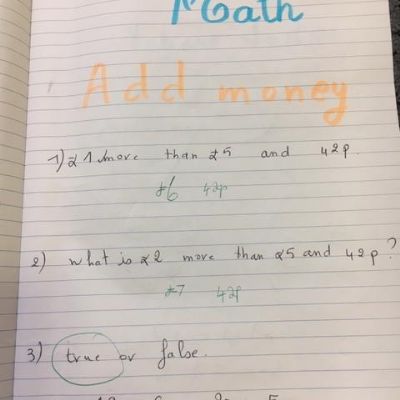 Math
Add money
1) £1 more than £5 and 42p.
£6 42p
2) What is £2 more than £5 and 42p?
£7 42p
3) true or false.